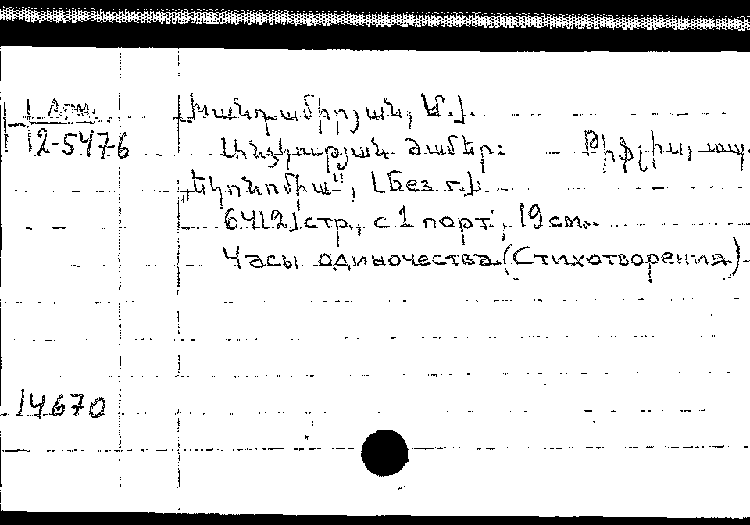 Арм.
2-5476
[Խանդամիրյան, Մ.].
Միայնության ժամեր: — Թիֆլիս, տպ.
„Էկոնոմիա", [Без г.].
64[2] стр., с 1 порт., 19 см.
Часы одиночества. (Стихотворения)
14670